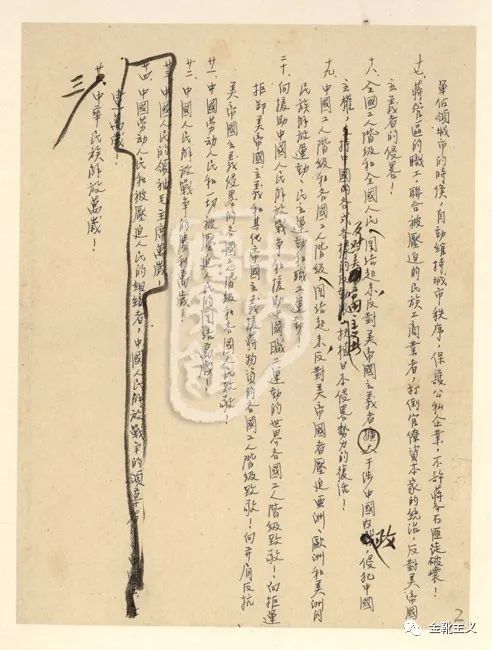 軍佔領城市的時候，自動維持城市秩序，保護公私企業，不許蔣介石匪徒破壞！
十七、蔣管區的職工，聯合被壓迫的民族工商業者，打倒官僚資本家的統治，反對美帝國
主義者的侵畧！
十八、全國工人階級和全國人民團結起來，反對美帝國主義者擴大干涉中國內政，侵犯中國
主權，反對美帝國主義扶植日本侵畧勢力的復活！
十九、中國工人階級和各國工人階級團結起來，反對美帝國者壓迫亞洲、歐洲和美洲的
民族解放運動、民主運動和職工運動！
二十、向援助中國人民解放戰爭和援助中國職工運動的世界各國工人階級致敬！向拒運
拒卸美帝國主義和其他帝國主義援蔣物資的各國工人階級致敬！向并肩反抗
美帝國主義侵畧的各國工人階級和各國人民致敬！
廿一、中國勞動人民和一切被壓迫人民的團結萬歲！
廿二、中國人民解放戰爭的勝利萬歲！
廿三、中國人民的領袖毛主席萬歲！
廿四、中國勞動人民和被壓迫人民的組織者，中國人民解放戰爭的領導者
萬歲！
三
中華民族解放萬歲！
2
金靴主义